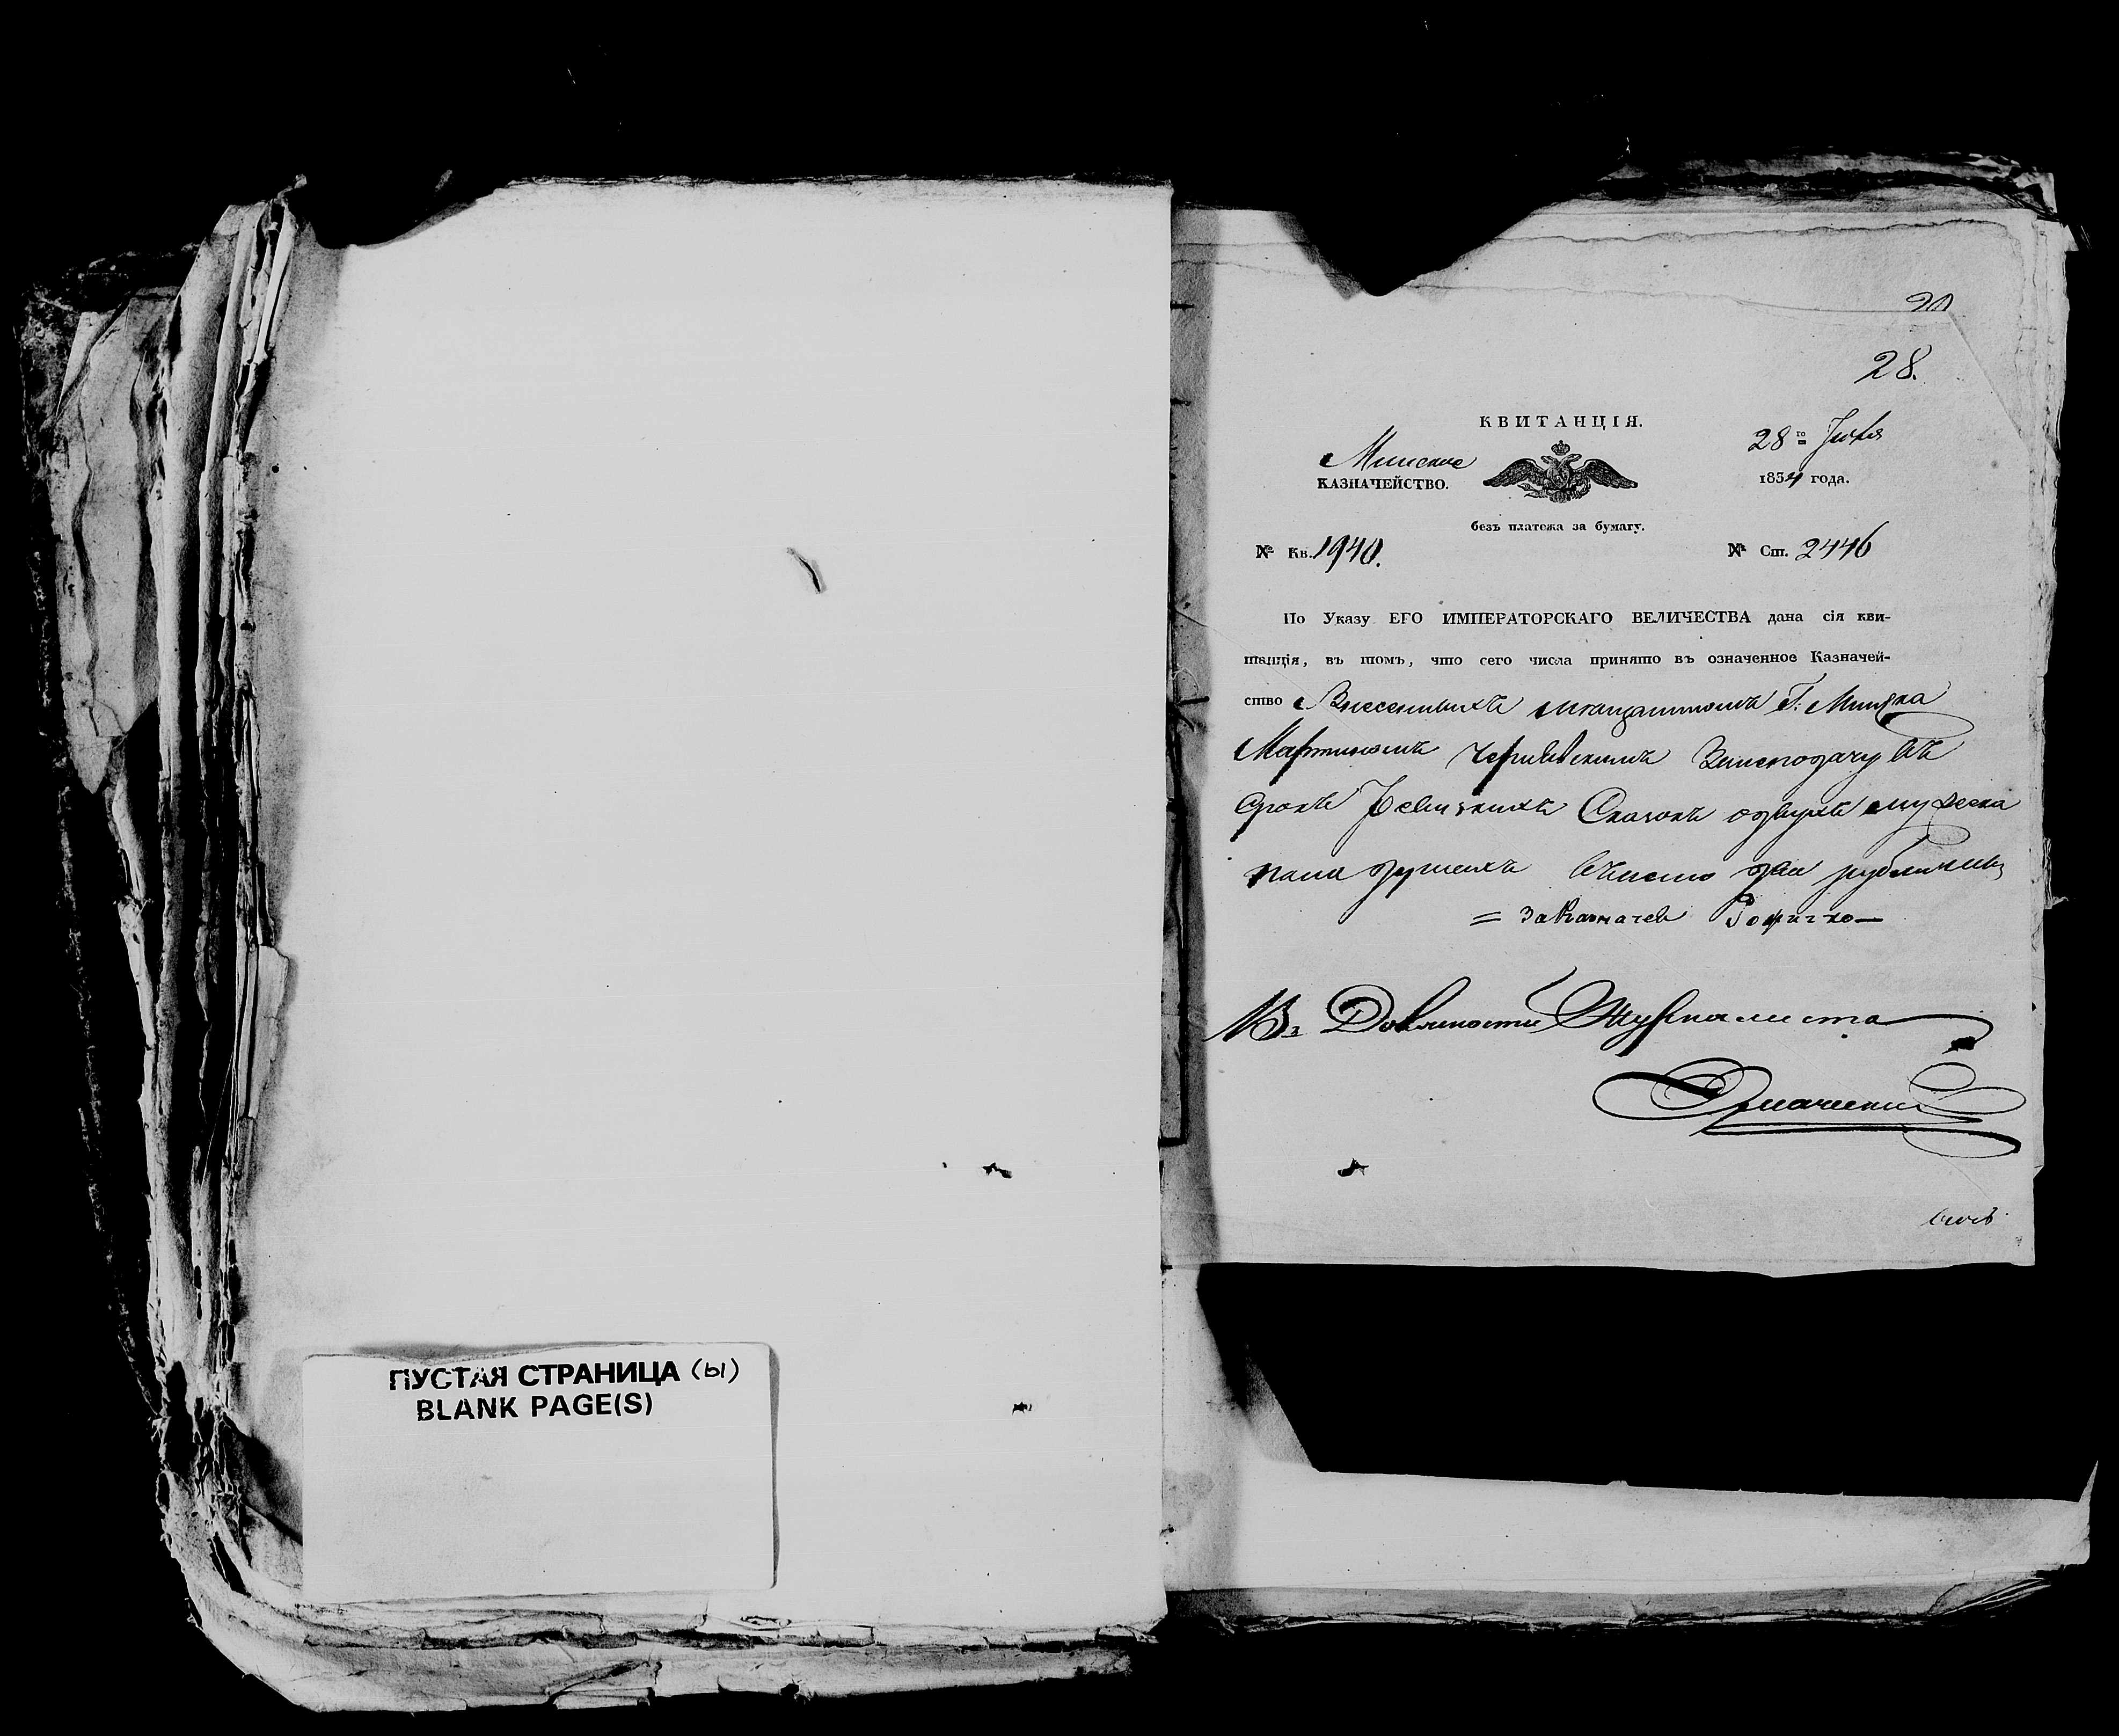 ПУСТАЯ СТРАНИЦА (ы)
BLANK PAGE(S)
20
28.
КВИТАНЦІЯ.
Минское
КАЗНАЧЕЙСТВО.
28го
1834 года.
безъ платежа за бумагу.
№ Кв. 1940.
№ Ст. 2446
По Указу ЕГО ИМПЕРАТОРСКАГО ВЕЛИЧЕСТВА дана сія кви-
танція, въ томъ, что сего числа принято въ означенное Казначей-
ство Внесенныхъ мѣщаниномъ Г: Минска
Мартиномъ Чернявскимъ Занеподачу въ
срокъ Ревизскихъ Сказокъ одвухъ мужеска
пола душахъ два рубли
= За Казначея
Въ Должности Журналиста